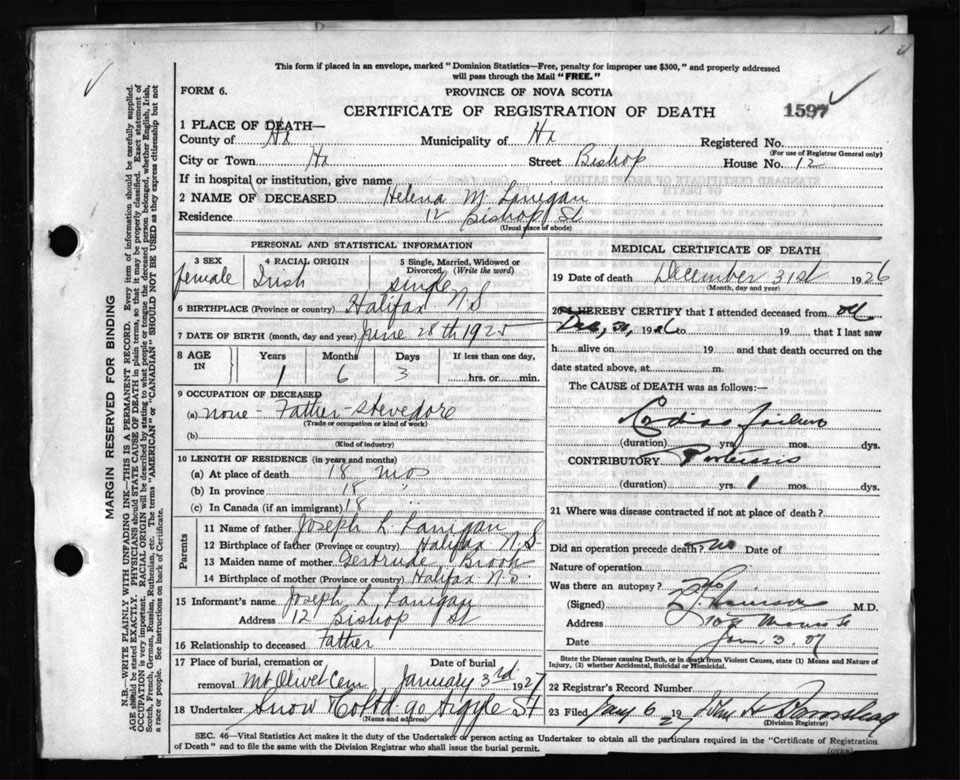 This form if placed in an envelope, marked "Dominion Statistics—Free, penalty for improper use $300," and properly addressed
will pass through the Mail "FREE."
FORM 6.
PROVINCE OF NOVA SCOTIA
CERTIFICATE OF REGISTRATION OF DEATH
1597
1 PLACE OF DEATH—
County of Hx Municipality of Hx Registered No.
(For use of Registrar General only)
City or Town Hx Street Bishop House No. 12
If in hospital or institution, give name
2 NAME OF DECEASED Helena M. Lanigan
Residence 12 Bishop St
(Usual place of abode)
PERSONAL AND STATISTICAL INFORMATION
3 SEX female
4 RACIAL ORIGIN Irish
5 Single, Married, Widowed or Divorced, (Write the word) single
6 BIRTHPLACE (Province or country) Halifax N S
7 DATE OF BIRTH (month, day and year) June 28th 1925
8 AGE IN Years Months Days If less than one day,
1 6 3 hrs. or min.
9 OCCUPATION OF DECEASED
(a) none - Father - stevedore
(Trade or occupation or kind of work)
(b)
(Kind of industry)
10 LENGTH OF RESIDENCE (in years and months)
(a) At place of death 18 mos
(b) In province 18 "
(c) In Canada (if an immigrant) 18 "
Parents
11 Name of father Joseph L Lanigan
12 Birthplace of father (Province or country) Halifax N.S
13 Maiden name of mother Gertrude
14 Birthplace of mother (Province or country) Halifax N.S.
15 Informant's name Joseph L. Lanigan
Address 12 Bishop St
16 Relationship to deceased Father
17 Place of burial, cremation or removal Mt Olivet Cem
Date of burial January 3rd 1927
18 Undertaker Snow & Co Ltd. 90 Argyle St
(Name and address)
MEDICAL CERTIFICATE OF DEATH
19 Date of death December 31st 1926
(Month, day and year)
20 I HEREBY CERTIFY that I attended deceased from
Dec, 1926 to 19 that I last saw
h alive on 19 and that death occurred on the
date stated above, at m.
The CAUSE of DEATH was as follows:—
Cardiac failure
(duration) yrs. mos. dys.
CONTRIBUTORY Pertussis
(duration) yrs. 1 mos. dys.
21 Where was disease contracted if not at place of death?
Did an operation precede death? no Date of
Nature of operation
Was there an autopsy? no
(Signed) M.D.
Address Morris St
Date Jan. 3. 07
State the Disease causing Death, or in death from Violent Causes, state (1) Means and Nature of
Injury, (2) whether Accidental, Suicidal or Homicidal.
22 Registrar's Record Number
23 Filed Jany 6 19 John H
(Division Registrar)
SEC. 46—Vital Statistics Act makes it the duty of the Undertaker or person acting as Undertaker to obtain all the particulars required in the "Certificate of Registration
of Death" and to file the same with the Division Registrar who shall issue the burial permit.
(OVER)
MARGIN RESERVED FOR BINDING
N.B.—WRITE PLAINLY WITH UNFADING INK—THIS IS A PERMANENT RECORD. Every item of information should be carefully supplied.
AGE should be stated EXACTLY. PHYSICIANS should STATE CAUSE OF DEATH in plain terms, so that it may be properly classified. Exact statement of
OCCUPATION is very important. RACIAL ORIGIN will be described by stating to what people or tongue the deceased person belonged, whether English, Irish,
Scotch, French, German, Russian, Ruthenian, etc. The terms "AMERICAN" or "CANADIAN" SHOULD NOT BE USED as they express citizenship but not
a race or people. See instructions on back of Certificate.